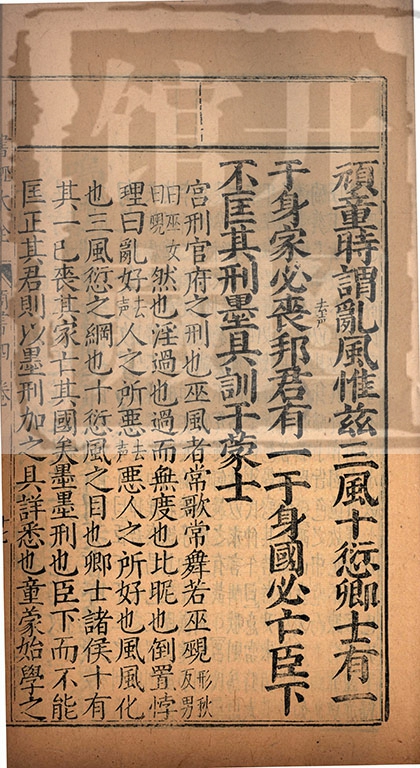 頑童時謂亂風惟茲三風十愆卿士有一
于身家必喪去聲邦君有一于身國必亡臣下
不匡其刑墨具訓于蒙士
宮刑官府之刑也巫風者常歌常舞若巫覡形狄反男
曰巫女曰覡然也淫過也過而無度也比昵也倒置悖
理曰亂好去聲人之所惡去聲惡人之所好也風風化
也三風愆之綱也十愆風之目也卿士諸侯十有
其一已喪其家亡其國矣墨墨刑也臣下而不能
匡正其君則以墨刑加之具詳悉也童蒙始學之